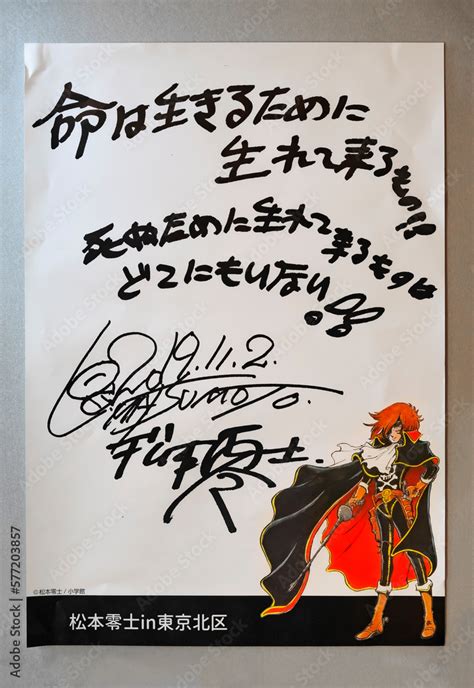 命は生きるために
生れて来るもの!!
死ぬために生れて
来るものは
どこにもいない。!!
2019.11.2.
L.MATSUMOTO.
松本零士.
©松本零士/小学館
松本零士in東京北区
Adobe Stock | #577203857